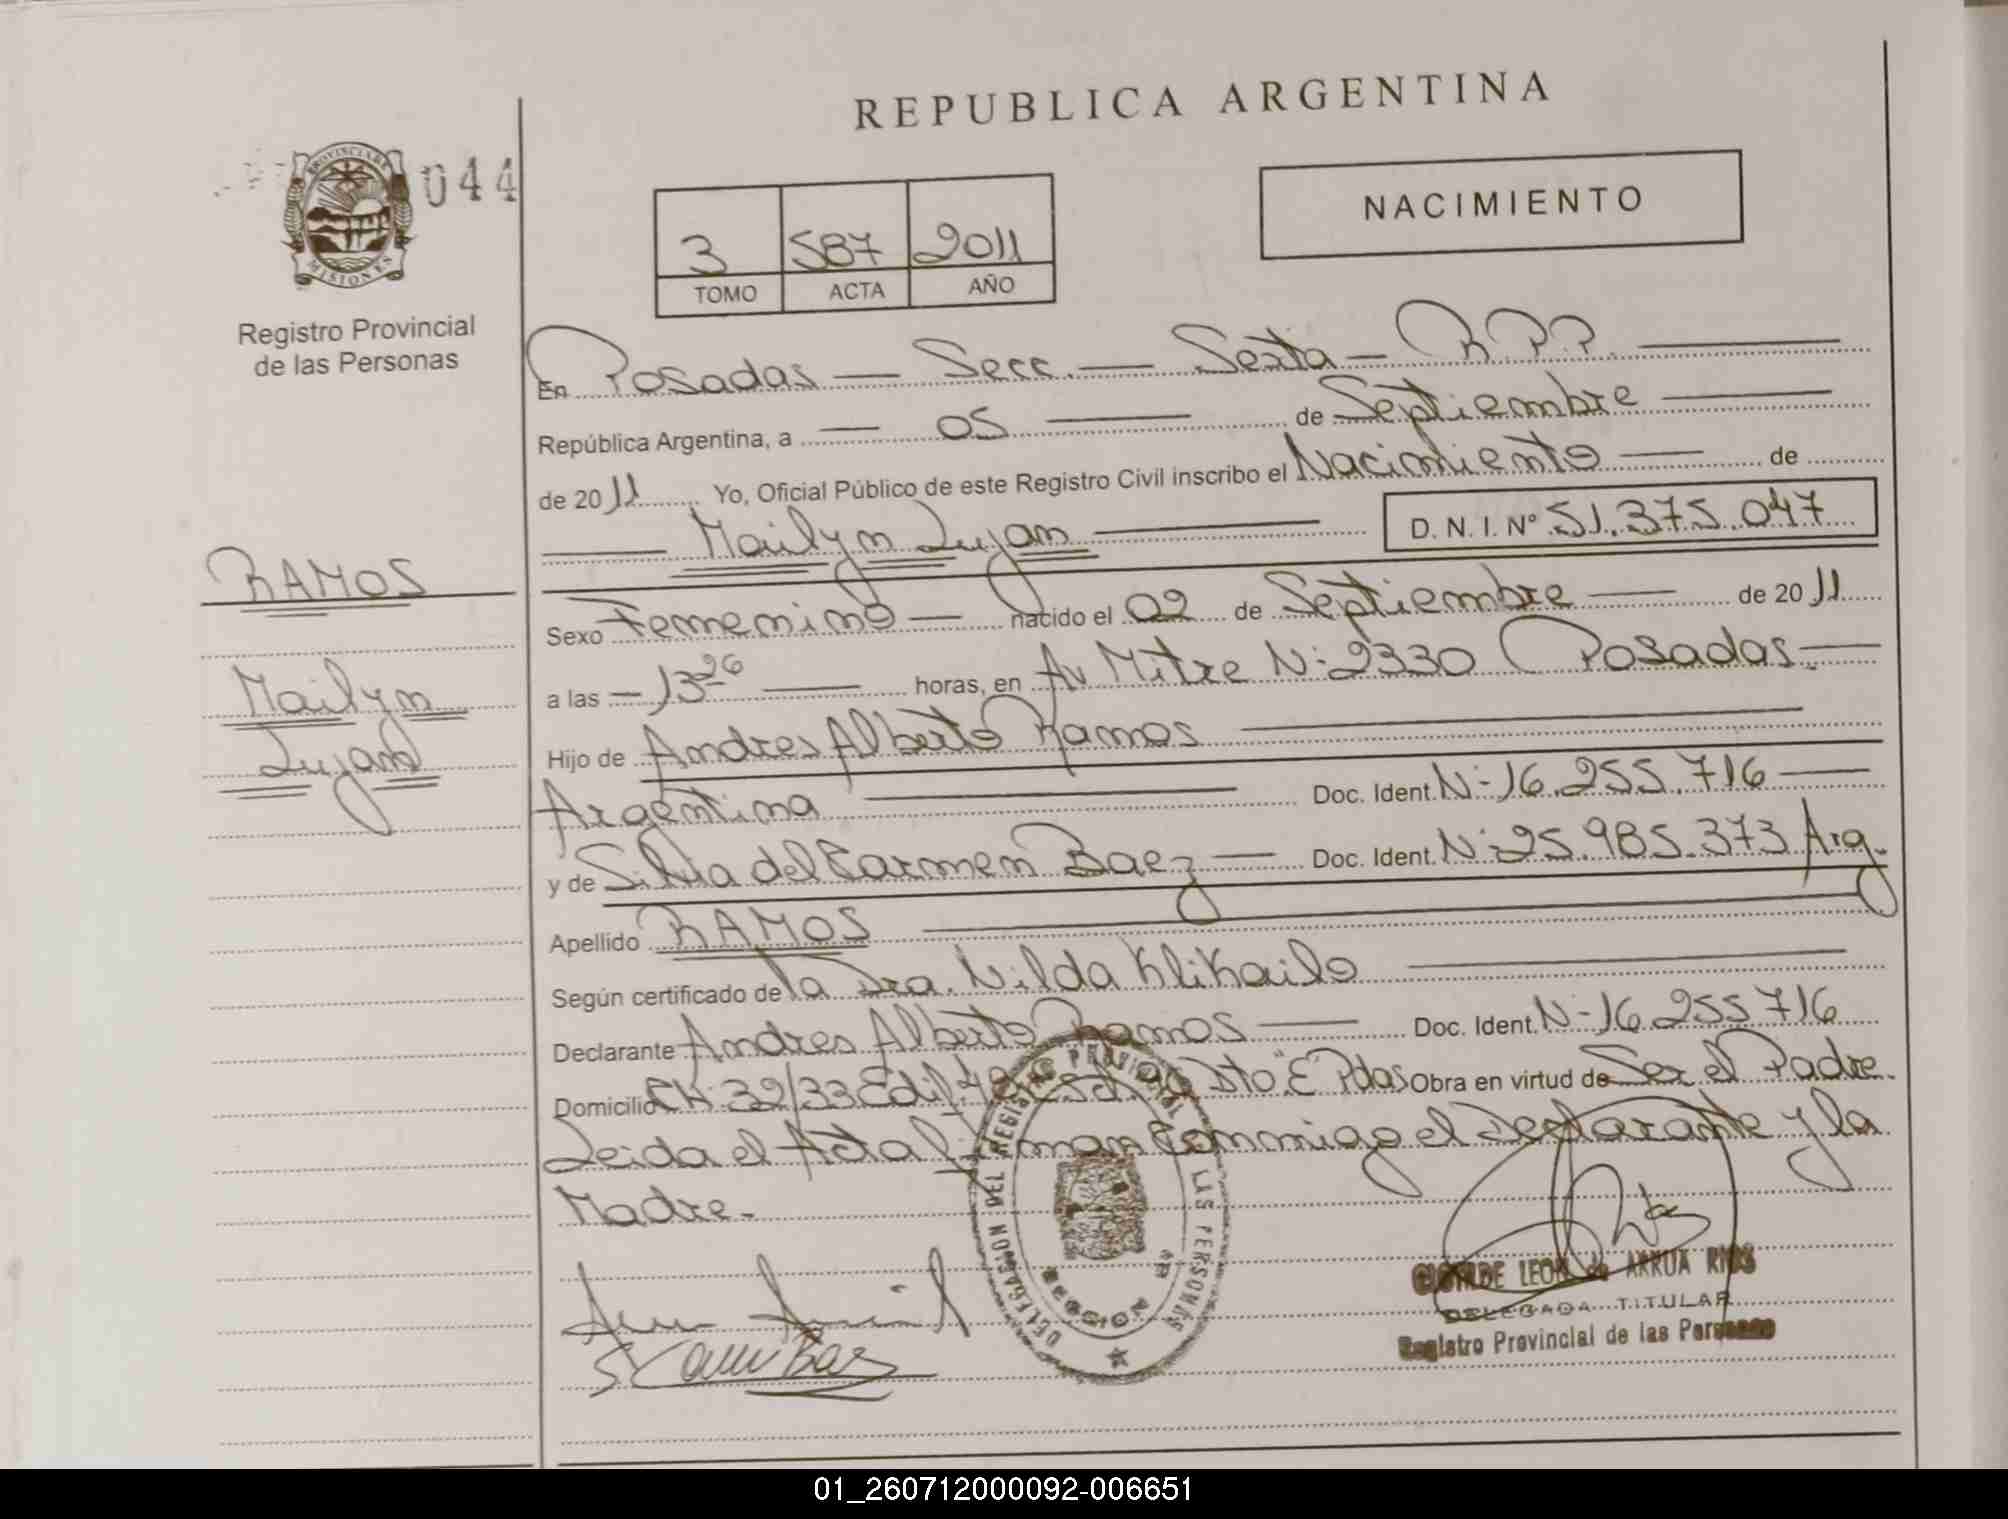 REPUBLICA ARGENTINA
PROVINCIA DE
MISIONES
044
Registro Provincial
de las Personas
NACIMIENTO
3 587 2011
TOMO ACTA AÑO
En Posadas — Secc. — Sexta — R.P.P.
República Argentina, a — 05 — de Septiembre
de 2011 Yo, Oficial Público de este Registro Civil inscribo el Nacimiento — de
Mailyn Lujan D. N. I. Nº 51.375.047
RAMOS
Mailyn
Lujan
Sexo Femenino — nacido el 02 de Septiembre — de 2011
a las — 13 26 — horas, en Av Mitre N: 2330 Posadas.
Hijo de Andres Alberto Ramos
Argentina Doc. Ident. N: 16.255.716
y de Silvia del Carmen Baez — Doc. Ident. N: 25.985.373 Arg.
Apellido RAMOS
Según certificado de la Dra. Nilda Klikailo
Declarante Andres Alberto Ramos — Doc. Ident. N: 16.255716
Domicilio Ch: 32/33 Edif. Dto "E" Pdas Obra en virtud de Ser el Padre.
Leida el Acta firman Conmigo el Declarante y la
Madre.-
DELEGACION DEL REGISTRO PROVINCIAL DE LAS PERSONAS
SECCION 6a
LEON de ARRUA RIOS
DELEGADA TITULAR
Registro Provincial de las Personas
01_260712000092-006651